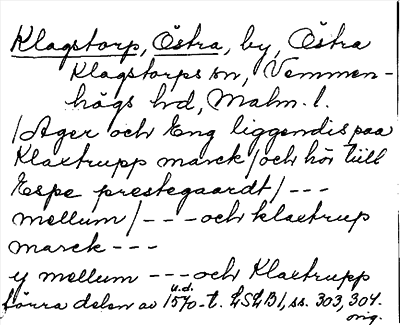 Klagstorp, Östra, by, Östra
Klagstorps sn, Vemmen-
högs hd, Malm. l.
/Ager och Eng liggendis paa
Klaxtrupp marck/och hör tüll
Espe prestegaardt/ ---
mellum/ --- och klaxtrup
marck ---
ij mellum --- och Klaxtrupp
u.d.
förra delen av 1570-t. LSLB1, ss. 303, 304.
orig.